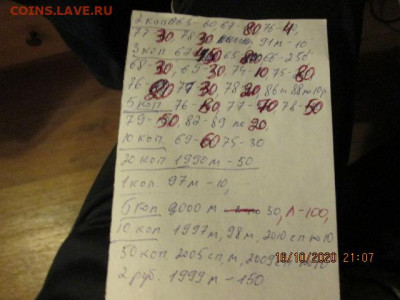 COINS.LAVE.RU
2 коп 65-60, 67- 80 75-40,
77 30 78 30 91м-10
3 коп 67 65 66-250
68-30, 69-30, 74-10 75-80
76 77 30 78 20, 86 и 88 по 10р
5 коп. 76-80, 77-70 78-50
79-50, 82-89 по 20,
10 коп 69-60 75-30
20 коп 1990м-50
1 коп 97м-10,
5 коп 2000 м 30, Л-100,
10 коп. 1997м, 98м, 2010 сп по 10
50 коп 2005 сп, м, 2009
2 руб. 1999м-150
18/10/2020 21:07